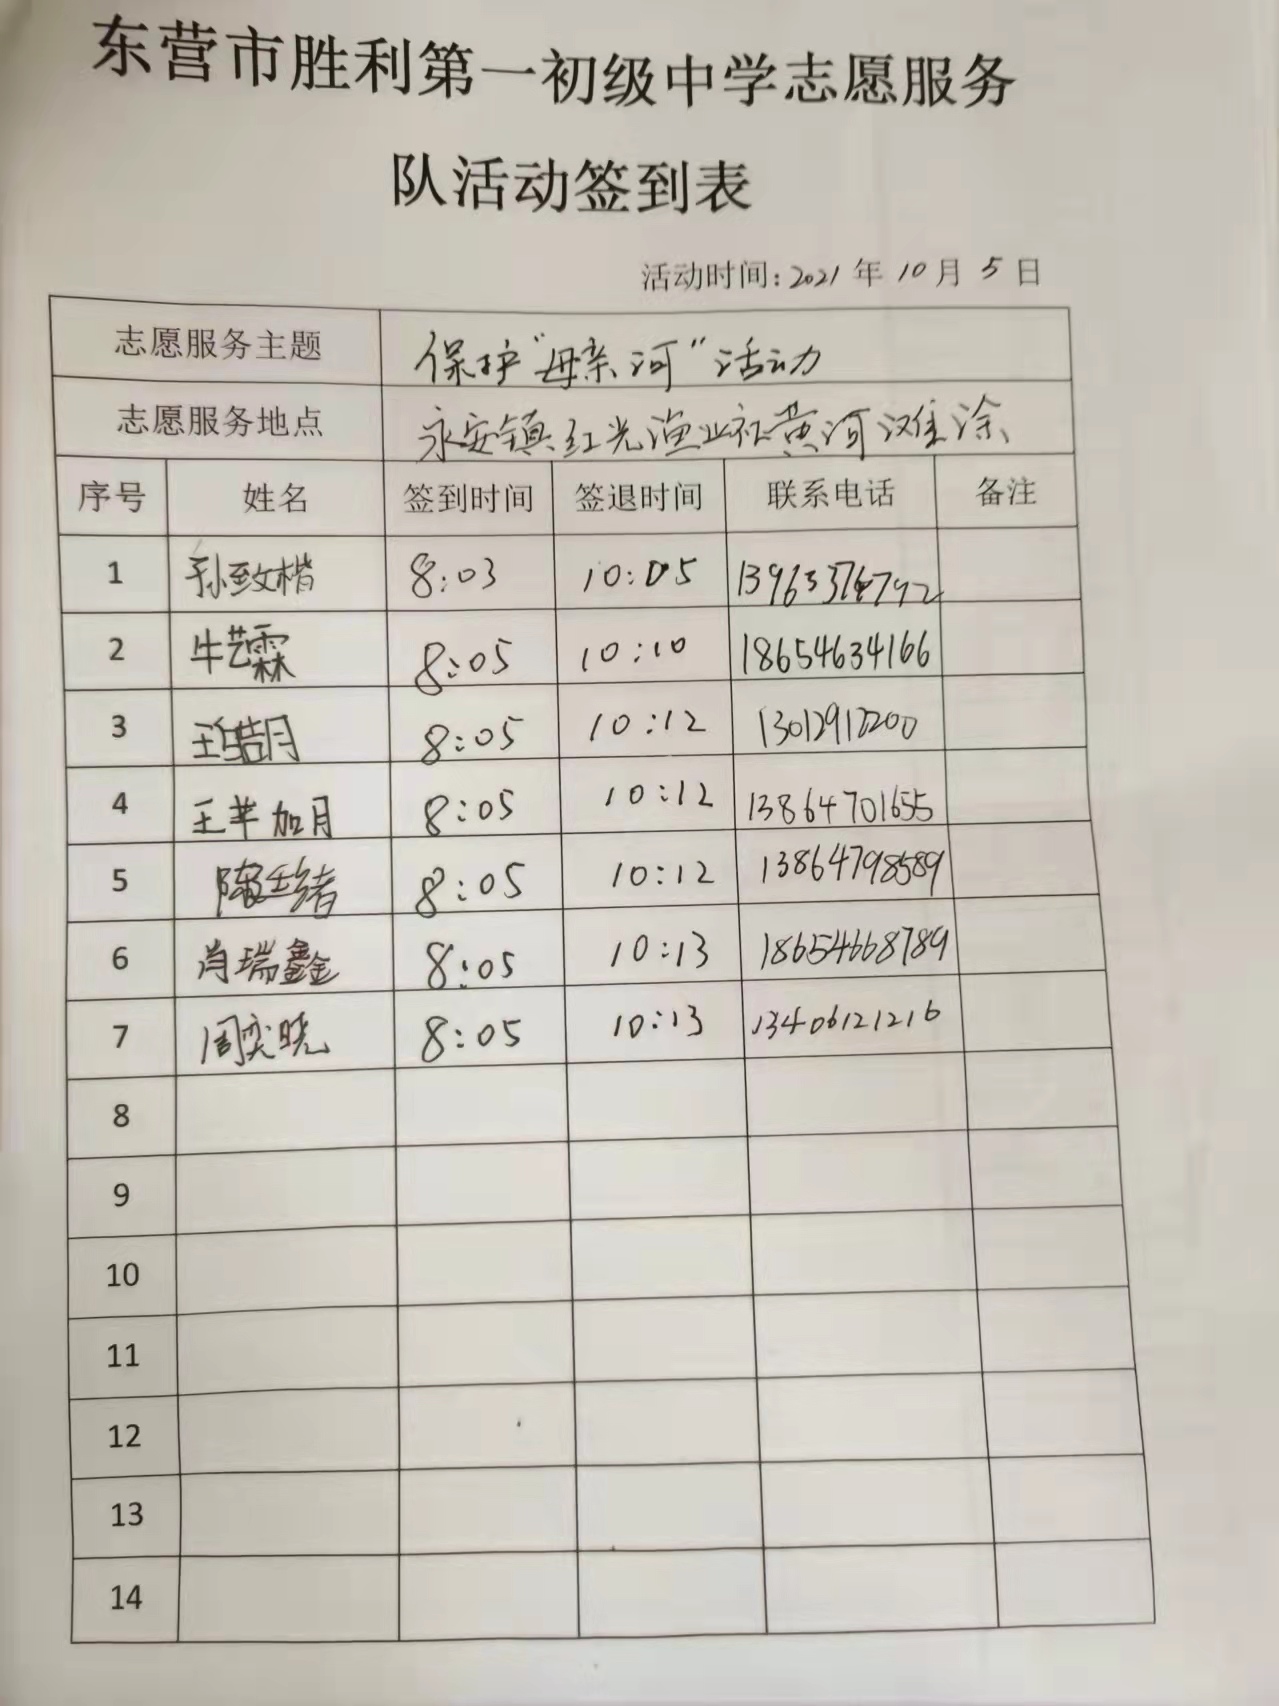 东营市胜利第一初级中学志愿服务
队活动签到表
活动时间:2021年10月5日
志愿服务主题 保护"母亲河"活动
志愿服务地点 永安镇红光渔业社黄河滩涂
序号 姓名 签到时间 签退时间 联系电话 备注
1 孙致楷 8:03 10:05
2 牛艺霖 8:05 10:10 18654634166
3 8:05 10:12
4 8:05 10:12 13864701655
5 8:05 10:12 13864798589
6 肖瑞鑫 8:05 10:13 18654668789
7 周奕晓 8:05 10:13 13406121216
8
9
10
11
12
13
14